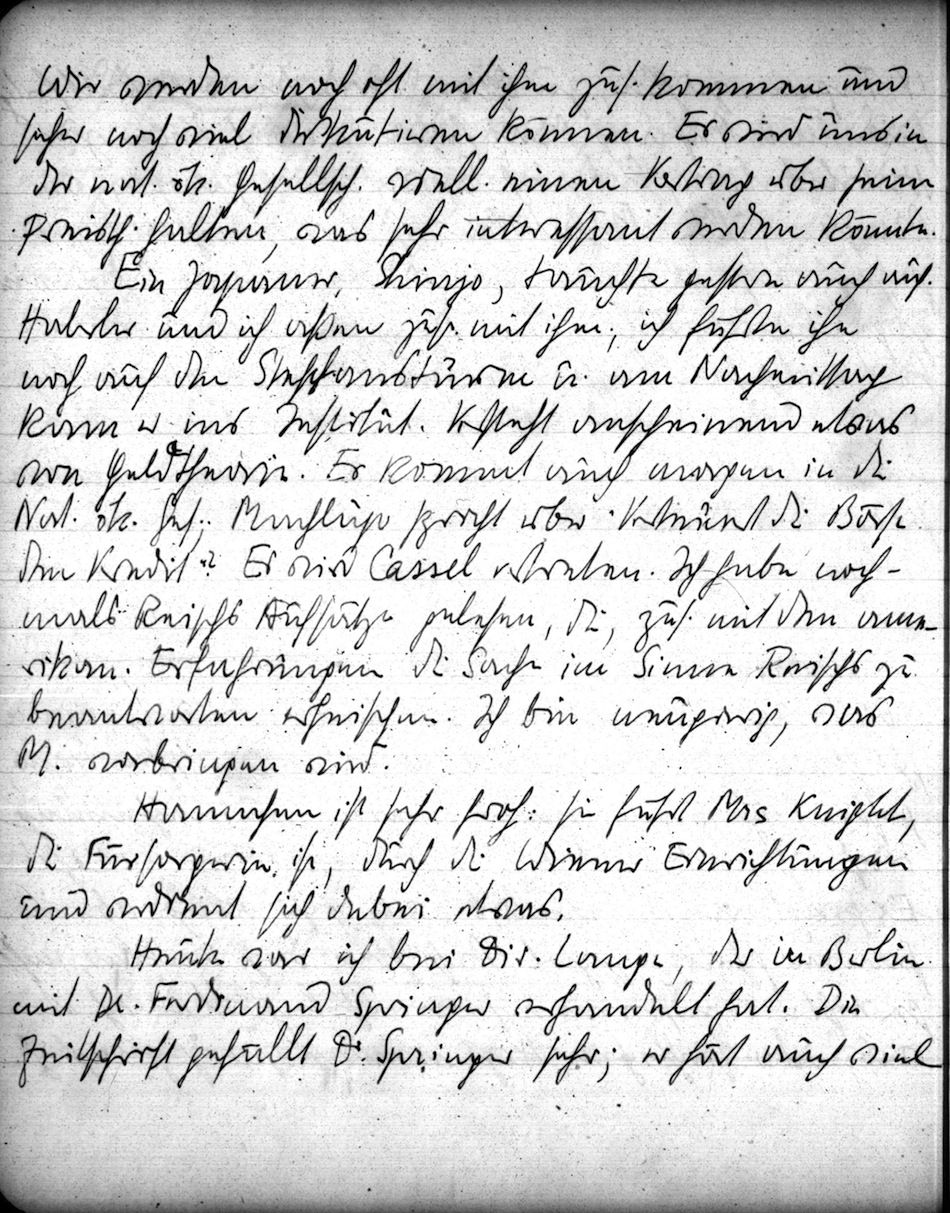 Wir werden noch oft mit ihm zus. kommen und
sicher noch viel diskutieren können. Er wird uns in
der nat. ök. Gesellsch. viell. einen Vortrag über seine
Preisth. halten, was sehr interessant werden könnte.
Ein Japaner, Shinjo, tauchte gestern auch auf.
Haberler und ich assen zus. mit ihm, ich führte ihn
noch auf den Stephansturm u. am Nachmittag
kam er ins Institut. Versteht anscheinend etwas
von Geldtheorie. Er kommt auch morgen in die
Nat. ök. Ges.; Machlup spricht über "Verteuert die Börse
den Kredit"? Er wird Cassel vertreten. Ich habe noch-
mals Reischs Aufsätze gelesen, die, zus. mit den ame-
rikan. Erfahrungen die Sache im Sinne Reischs zu
beantworten scheinen. Ich bin neugierig, was
M. vorbringen wird.
ist sehr froh: sie führt Mrs Knight,
die Fürsorgerin ist, durch die Wiener Einrichtungen
und verdient sich dabei etwas.
Heute war ich bei Dir. Lange, der in Berlin
mit Dr. Ferdinand Springer verhandelt hat. Die
Zeitschrift gefällt Dr. Springer sehr; er hört auch viel